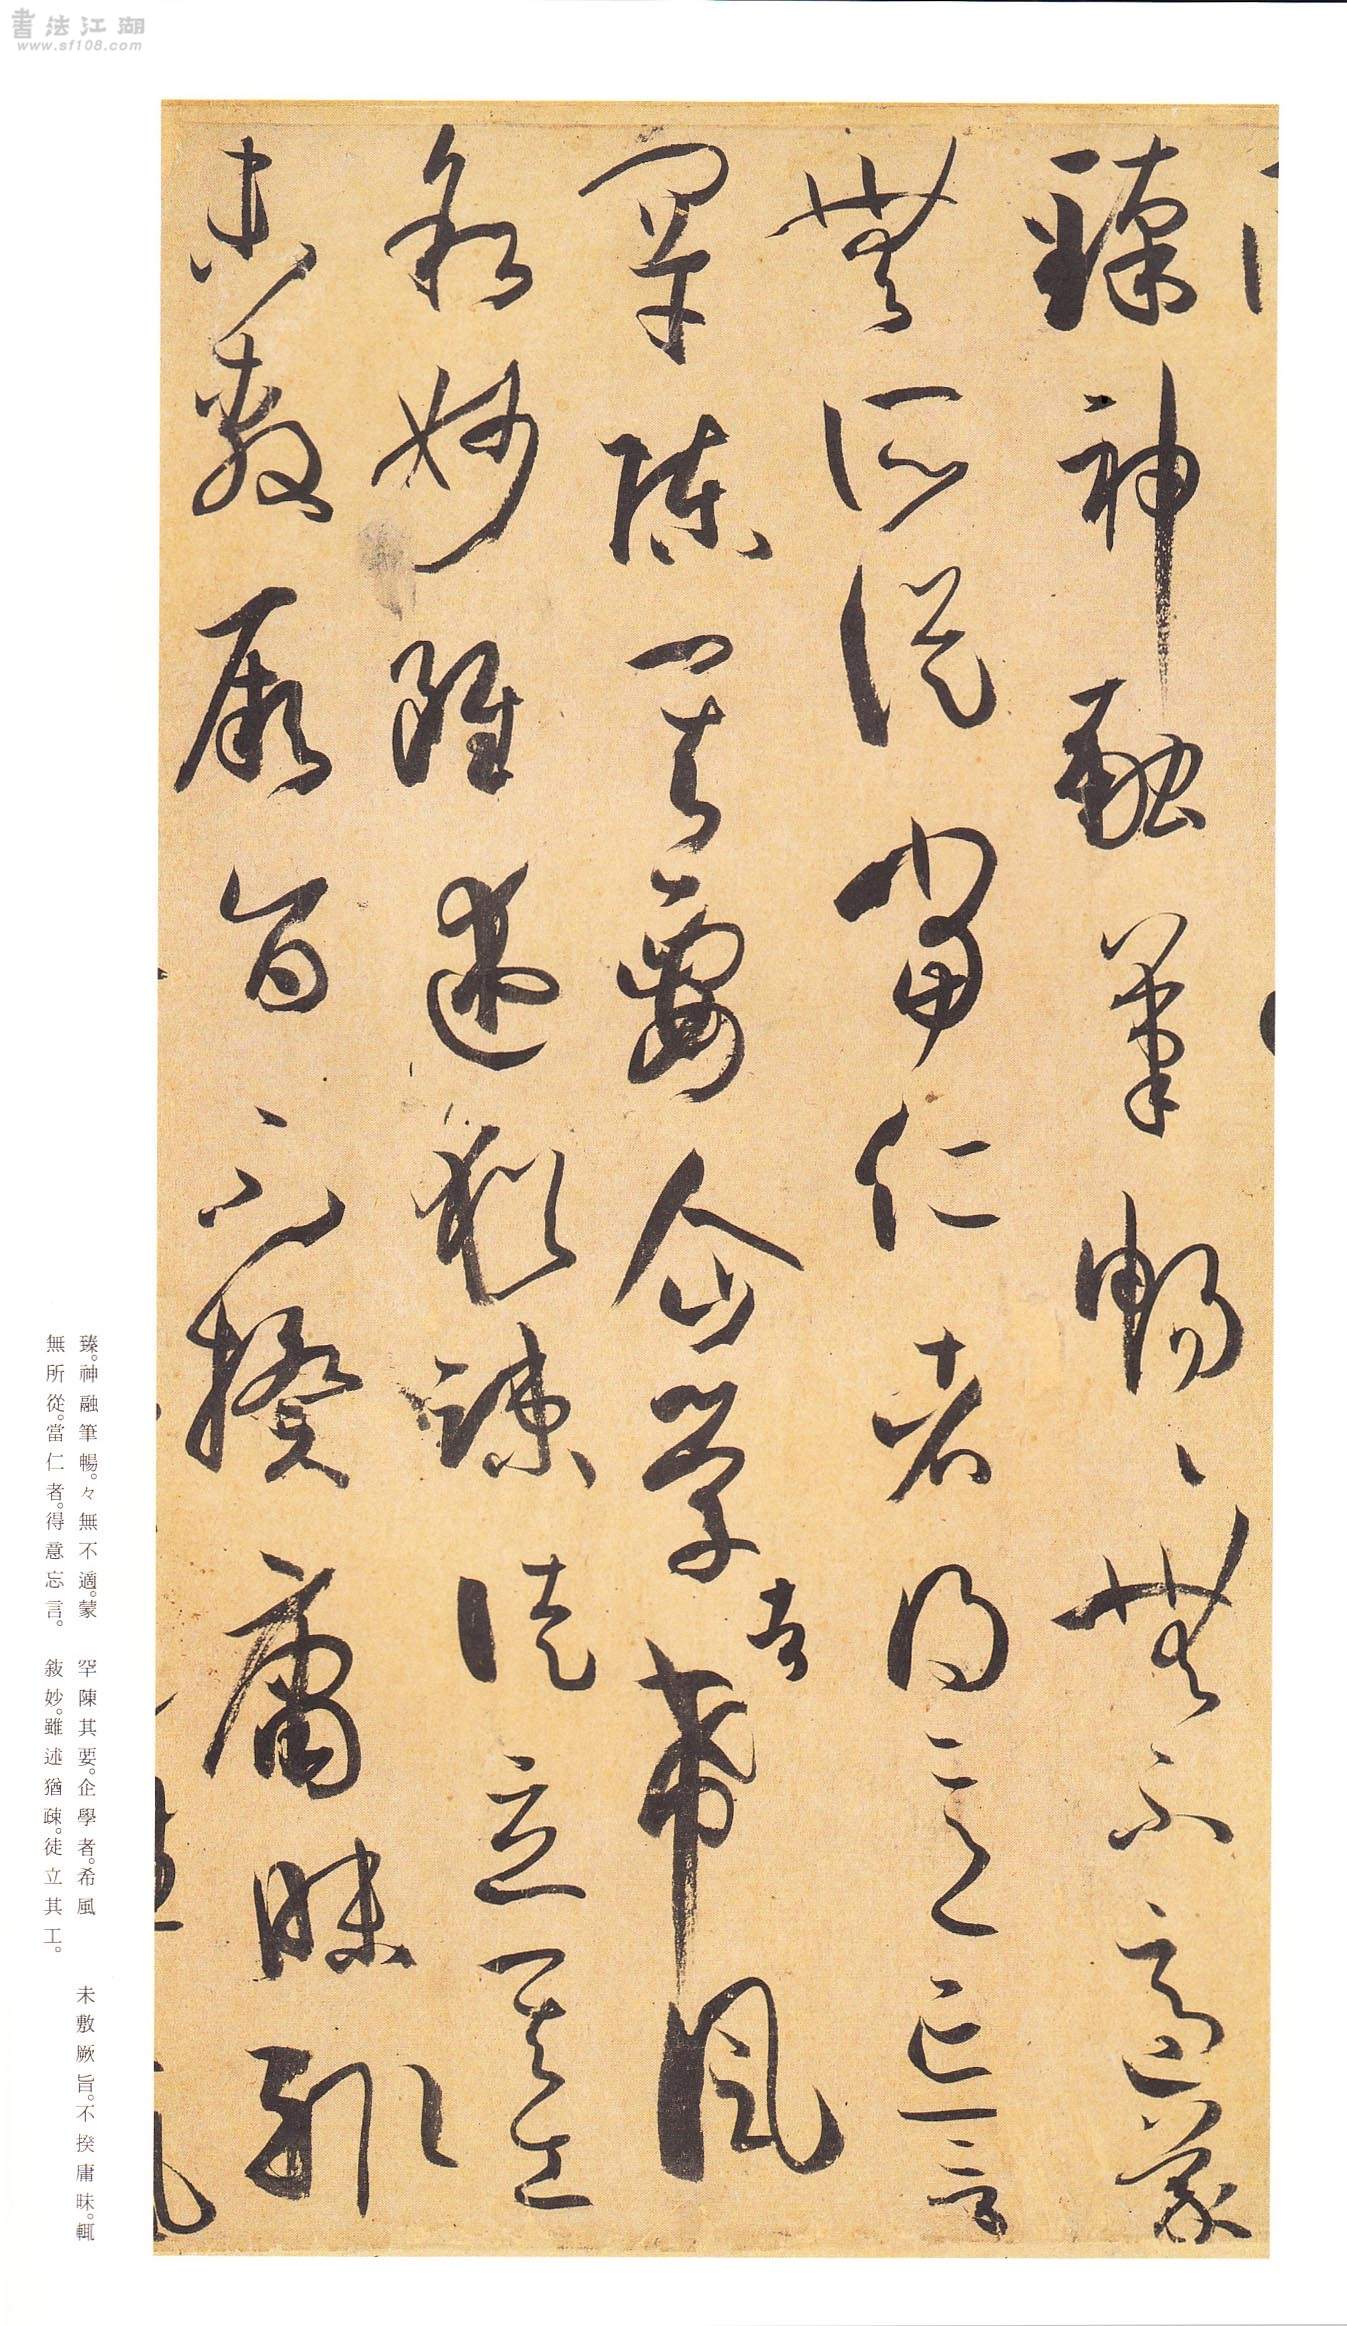 書法江湖
www.sf108.com
臻神融筆暢々無不適蒙
無所從當仁者得意忘言
罕陳其要企學者希風
敘妙雖述猶疎徒立其工
未敷厥旨不揆庸昧輒
臻。神融筆暢。々無不適。蒙
無所從。當仁者。得意忘言。
罕陳其要。企學者。希風
敍妙。雖述猶疎。徒立其工。
未敷厥旨。不揆庸昧。輒